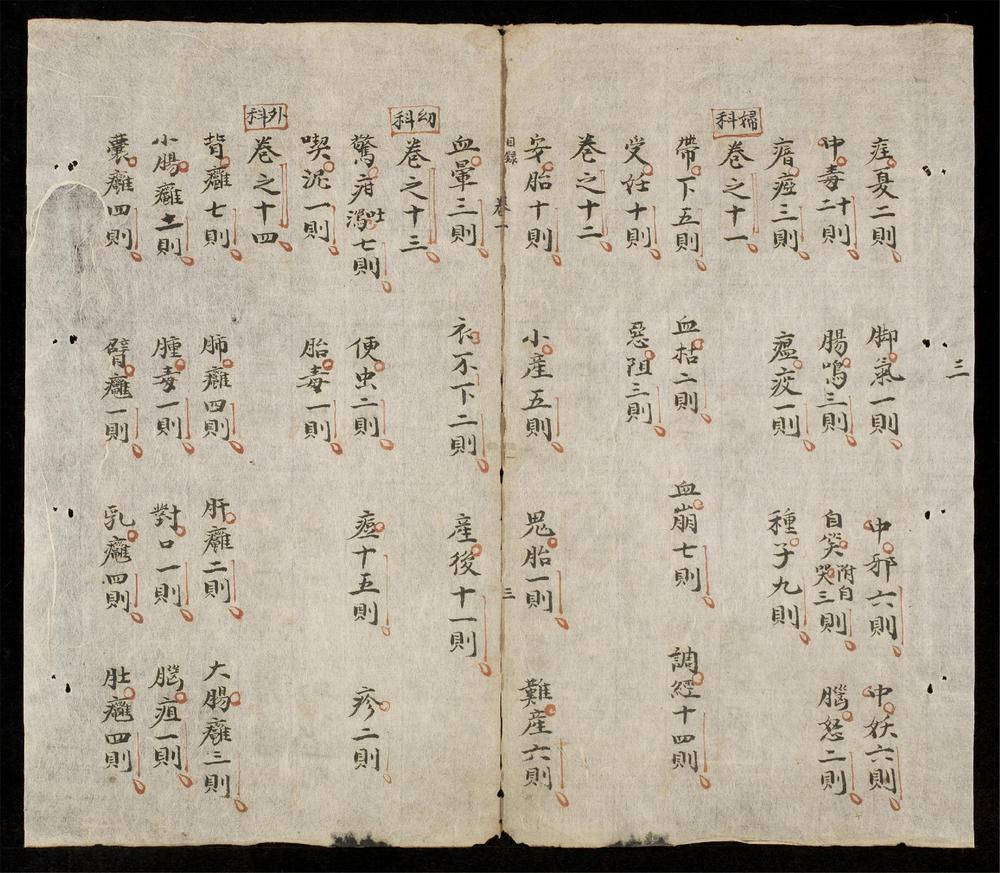 三
疰夏二則 脚氣一則 中邪六則 中妖六則
中毒十二則 腸鳴三則 自笑附自哭三則 惱怒二則
瘖瘂三則 瘟疫一則 種子九則
婦科
卷之十一
帶下五則 血枯二則 血崩七則 調經十四則
受妊十則 惡阻三則
卷之十二
安胎十則 小產五則 鬼胎一則 難產六則
目錄 卷一 三
血暈三則 衣不下二則 產後十一則
幼科
卷之十三
驚疳吐瀉七則 便虫二則 痘十五則 疹二則
喫泥一則 胎毒一則
外科
卷之十四
背癰七則 肺癰四則 肝癰二則 大腸癰三則
小腸癰則 腫毒一則 對口一則 腦疽一則
囊癰四則 臂癰一則 乳癰四則 肚癰四則